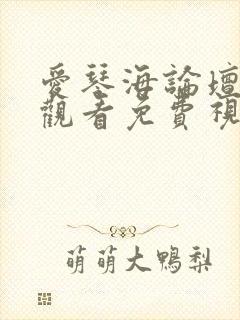 愛琴海論壇
觀看免費視
萌萌大鴨梨